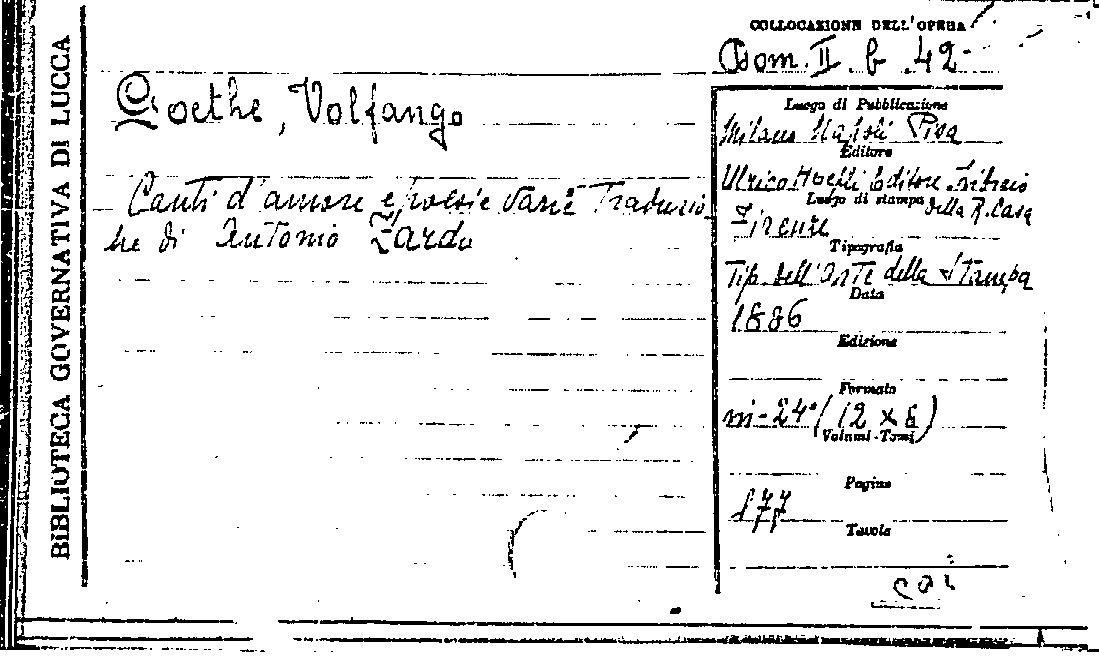 BIBLIOTECA GOVERNATIVA DI LUCCA
COLLOCAZIONE DELL'OPERA
Dom. II. b. 42
Goethe, Volfango
Canti d'amore e poesie varie Traduzio
ne di Antonio Zardo
Luogo di Pubblicazione
Milano Napoli Pisa
Editore
Ulrico Hoepli Editore Libraio
Luogo di stampa della R. Casa
Firenze
Tipografia
Tip. dell'Arte della Stampa
Data
1886
Edizione
Formato
in-24° (12 x 8)
Volumi-Tomi
Pagine
177
Tavole